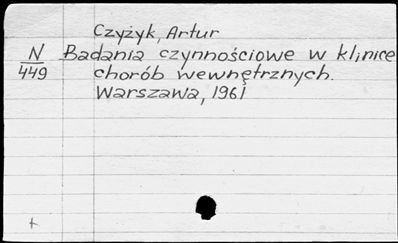 Czyżyk, Artur
N
449
Badania czynnościowe w klinice
chorób wewnętrznych.
Warszawa, 1961
+